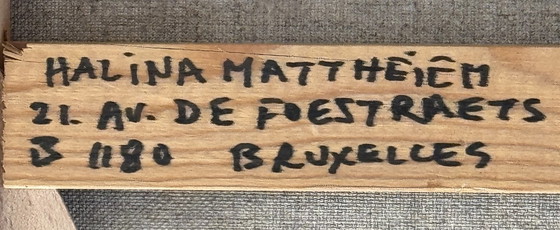 HALINA MATTHEÏEM
21. AV. DE FOESTRAETS
B 1180 BRUXELLES